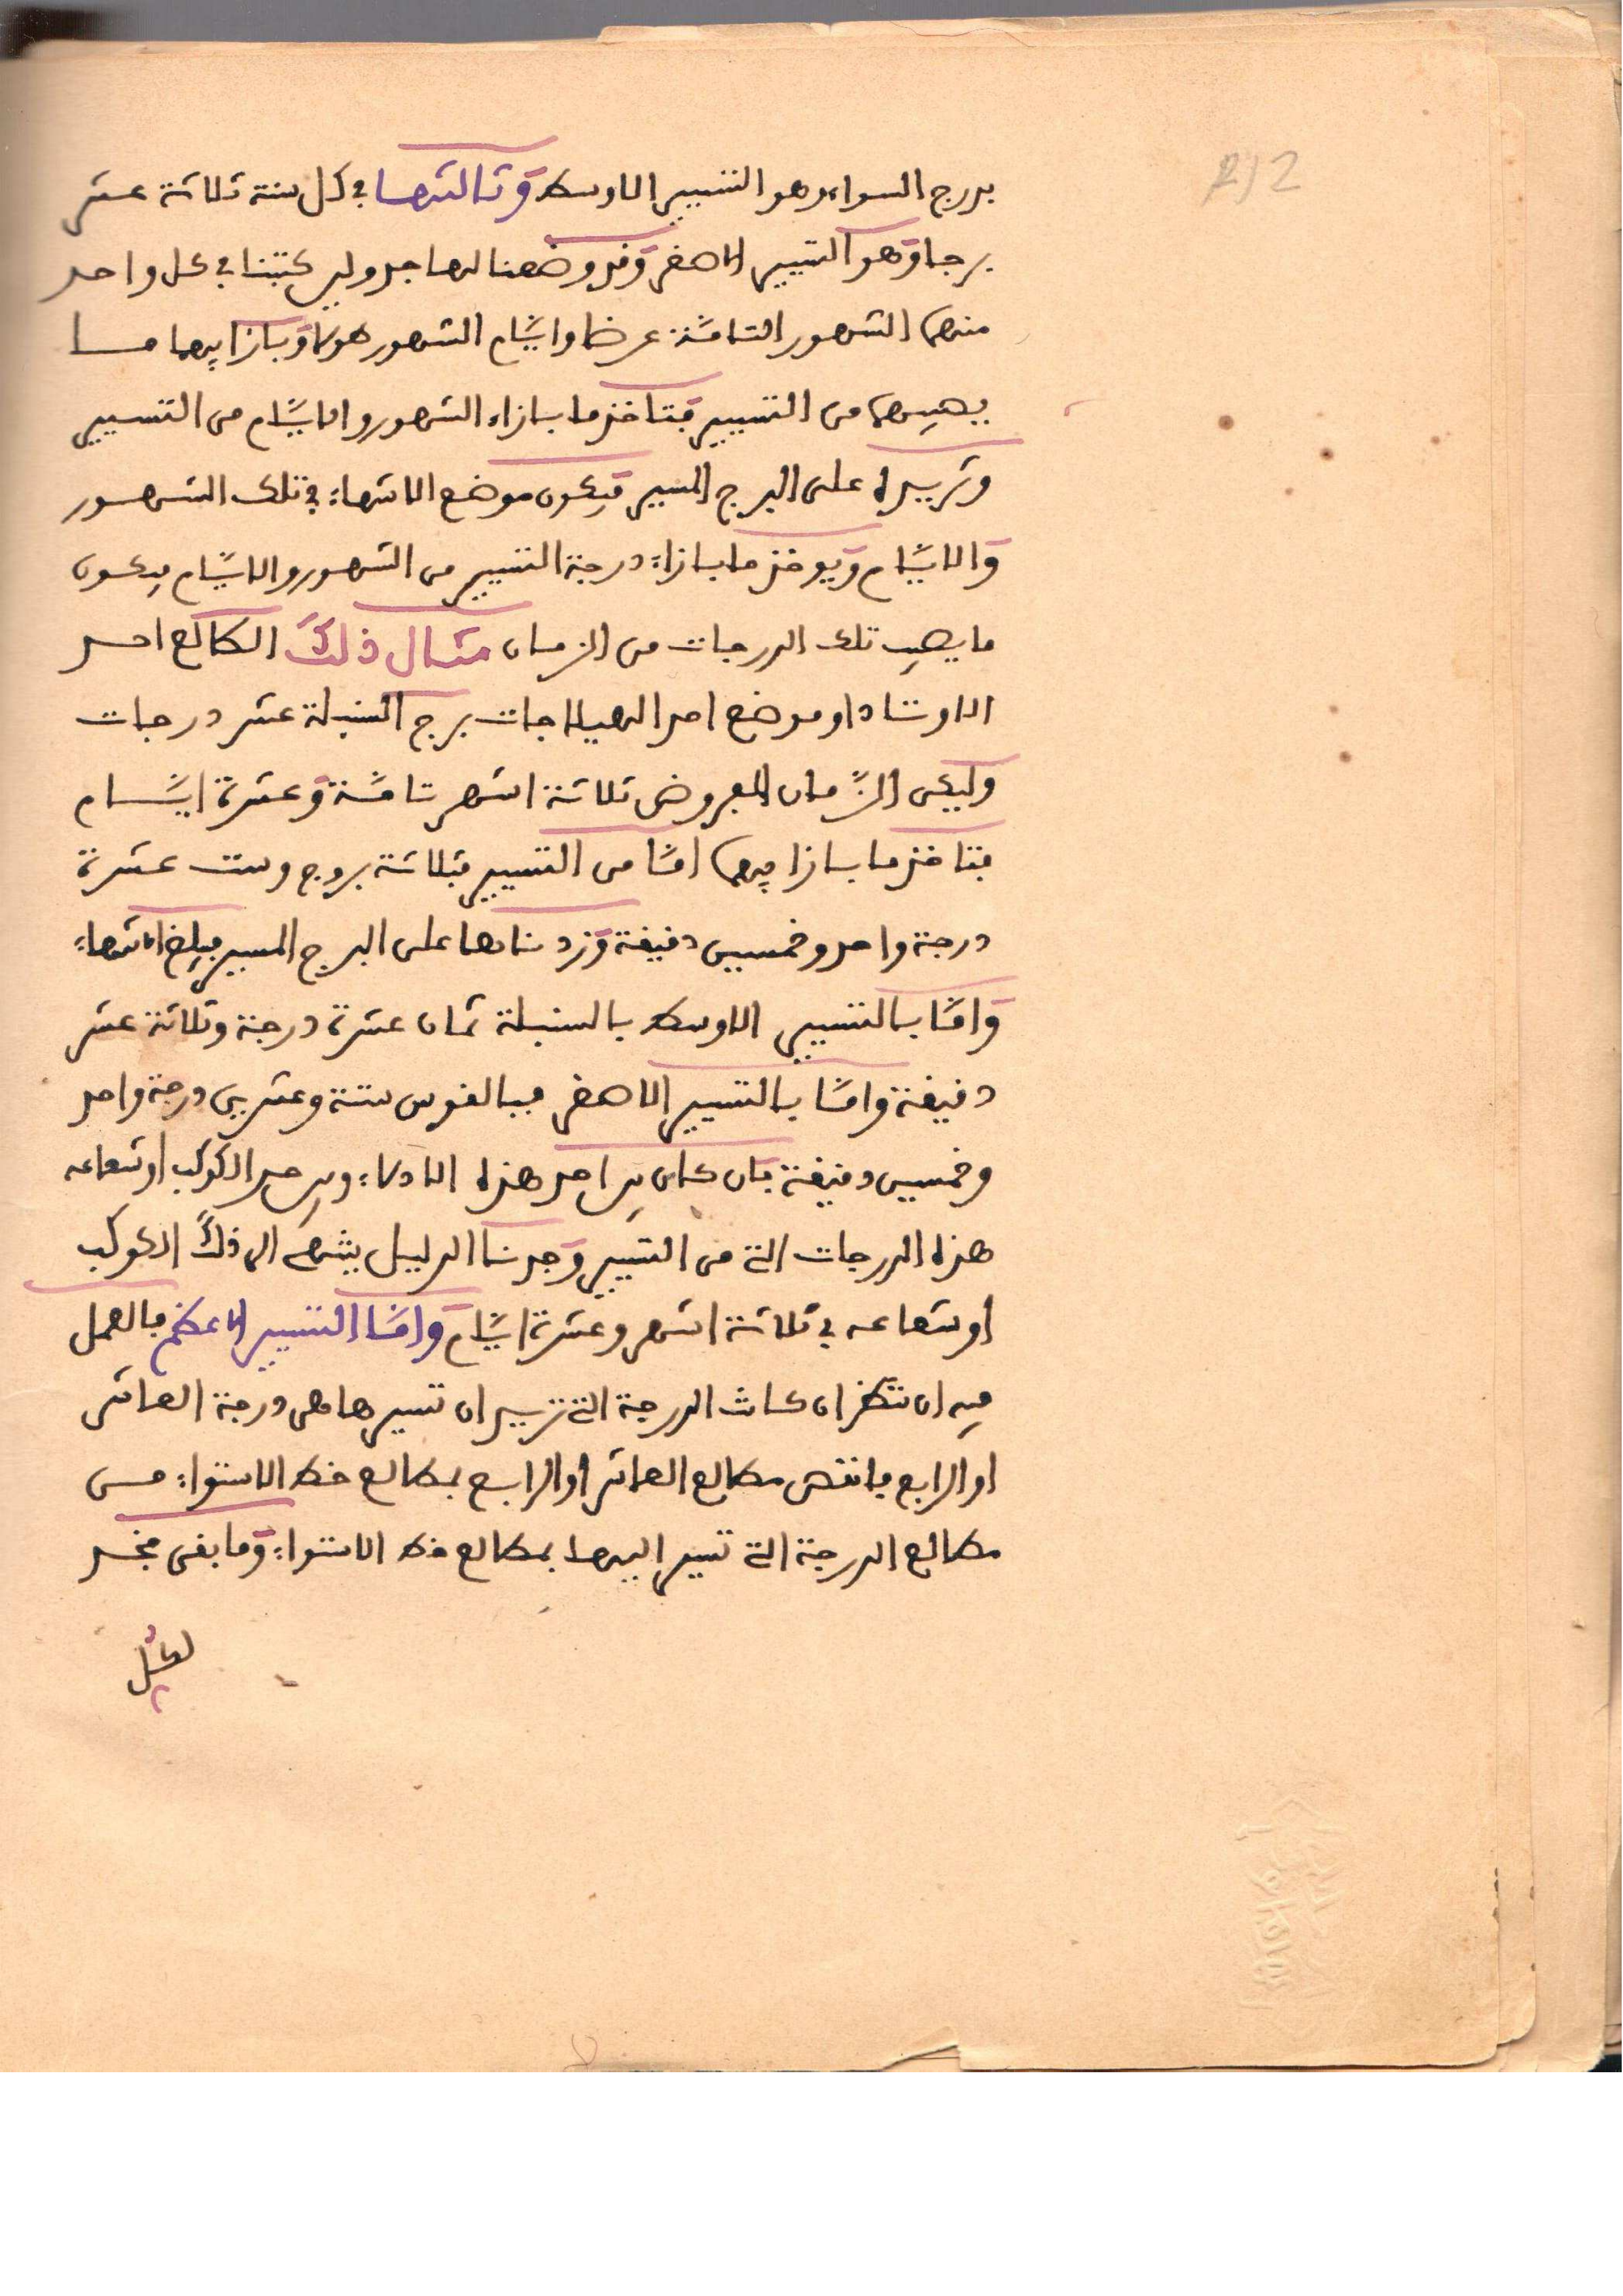 212
بدرج السواء وهو التسيير الاوسط وثالثها في كل سنة ثلاثة عشر
برجا وهو التسيير الاصغر وقد وضعنا لهما جدولين كتبنا في كل واحد
منهما الشهور التامّة عرضا وايّام الشهور طولا وبازايهما مسا
يصيبهما من التسيير فتاخذ ما بازاء الشهور والايّام من التسيير
وتزيده على البرج المسير فيكون موضع الانتهاء في تلك الشهور
والايّام ويوخذ ما بازاء درجة التسيير من الشهور والايّام يكون
ما يصيب تلك الدرجات من الزمان مثال ذلك الطالع احد
الاوتاد او موضع احد الهيلاجات برج السنبلة عشر درجات
وليكن الزّمان المفروض ثلاثة اشهر تامّة وعشرة ايّام
فتاخذ ما بازايهما امّا من التسيير فثلاثة بروج وست عشرة
درجة واحد وخمسين دقيقة وزدناها على البرج المسير فبلغ الانتهاء
وامّا بالتسيير الاوسط بالسنبلة ثمان عشرة درجة وثلاثة عشر
دقيقة وامّا بالتسيير الاصغر فبالقوس ستة وعشرين درجة واحد
وخمسين دقيقة فان كان في احد هذه الادلاء وفي حد الكوكب او شعاعه
هذه الدرجات التي من التسيير وجدنا الدليل ينتهي الى ذلك الكوكب
او شعاعه في ثلاثة اشهر وعشرة ايّام وامّا التسيير الاعظم فالعمل
فيه ان تنظر ان كانت الدرجة التي تريد ان تسيرها هي درجة العاشر
او الرابع فانقص مطالع العاشر او الرابع بمطالع خط الاستواء من
مطالع الدرجة التي تسير اليها بمطالع خط الاستواء وما بقى فخذ
لكلّ